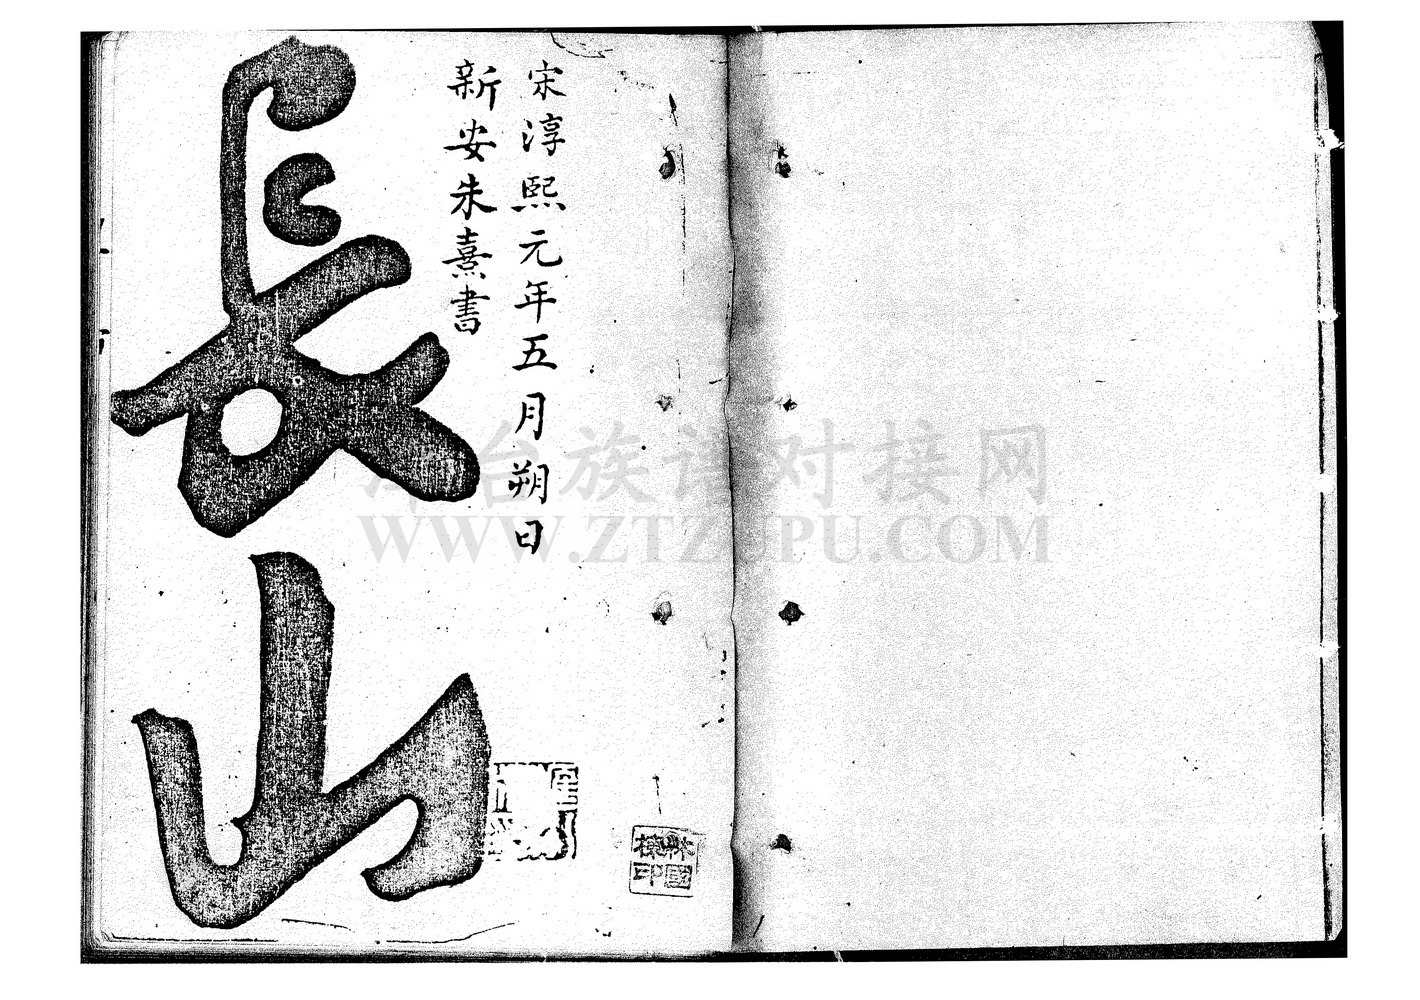 宋淳熙元年五月朔日
新安朱熹書
長山
林國
樑印
台族谱对接网
WWW.ZTZUPU.COM